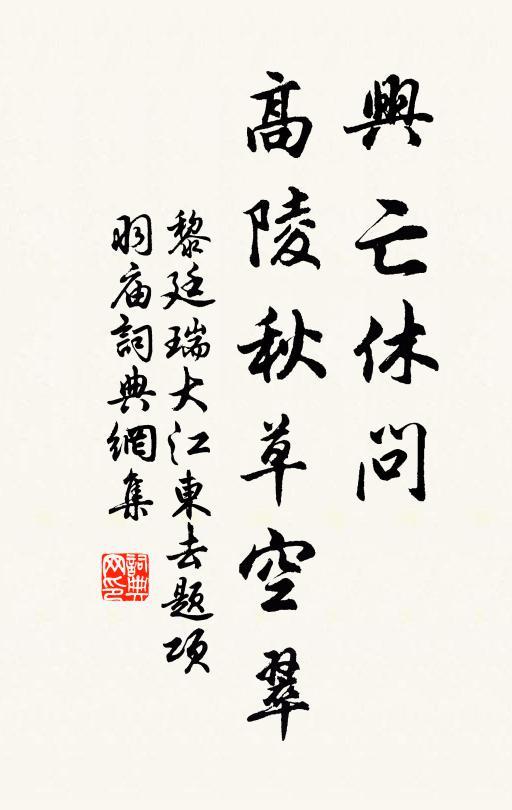 興亡休問
高陵秋草空翠
黎廷瑞大江東去題項
羽庙詞典網集
詞典
网印